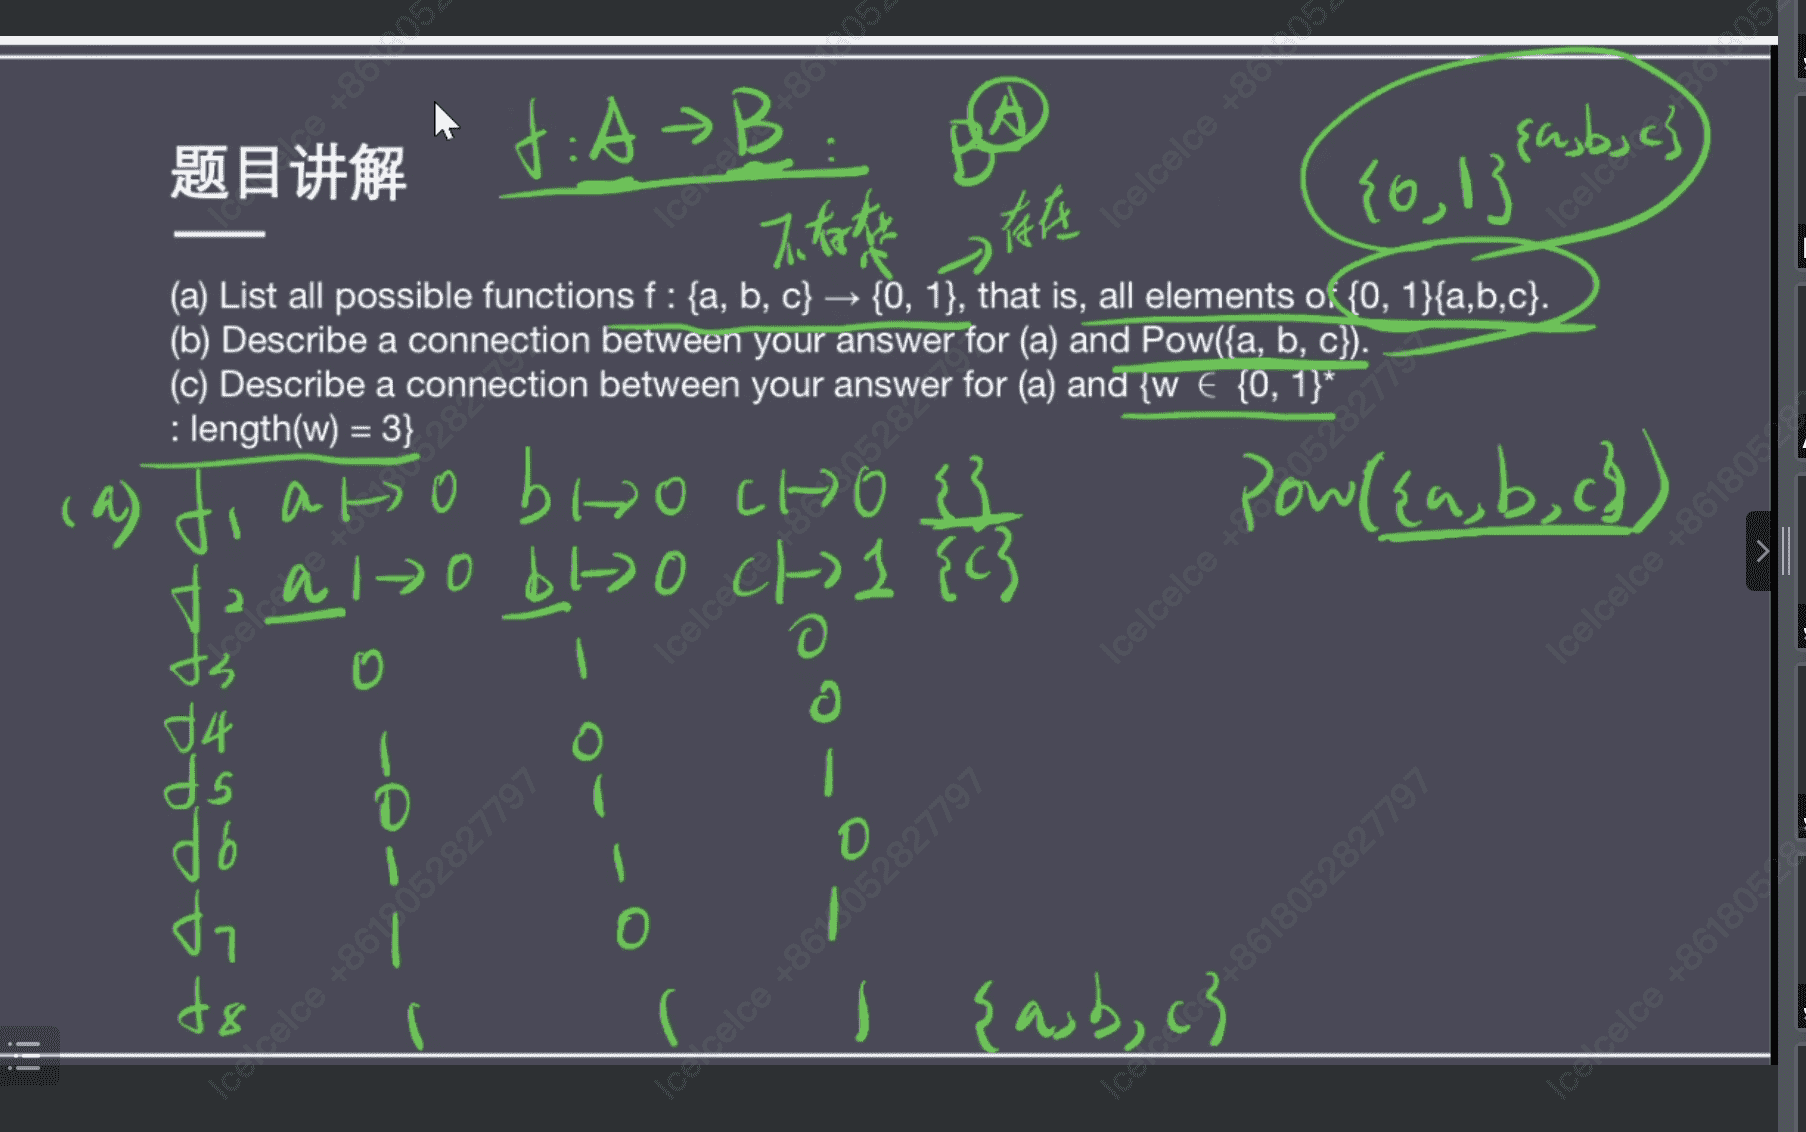 f : A → B : B^A
{0,1}^{a,b,c}
题目讲解
不存在 → 存在
(a) List all possible functions f : {a, b, c} → {0, 1}, that is, all elements of {0, 1}{a,b,c}.
(b) Describe a connection between your answer for (a) and Pow({a, b, c}).
(c) Describe a connection between your answer for (a) and {w ∈ {0, 1}*
: length(w) = 3}
(a) f1 a ↦ 0 b ↦ 0 c ↦ 0 {}
Pow({a,b,c})
f2 a ↦ 0 b ↦ 0 c ↦ 1 {c}
f3 0 1 0
f4 1 0 0
f5 0 1 1
f6 1 1 0
f7 1 0 1
f8 1 1 1 {a,b,c}
IceIce +8618052827797